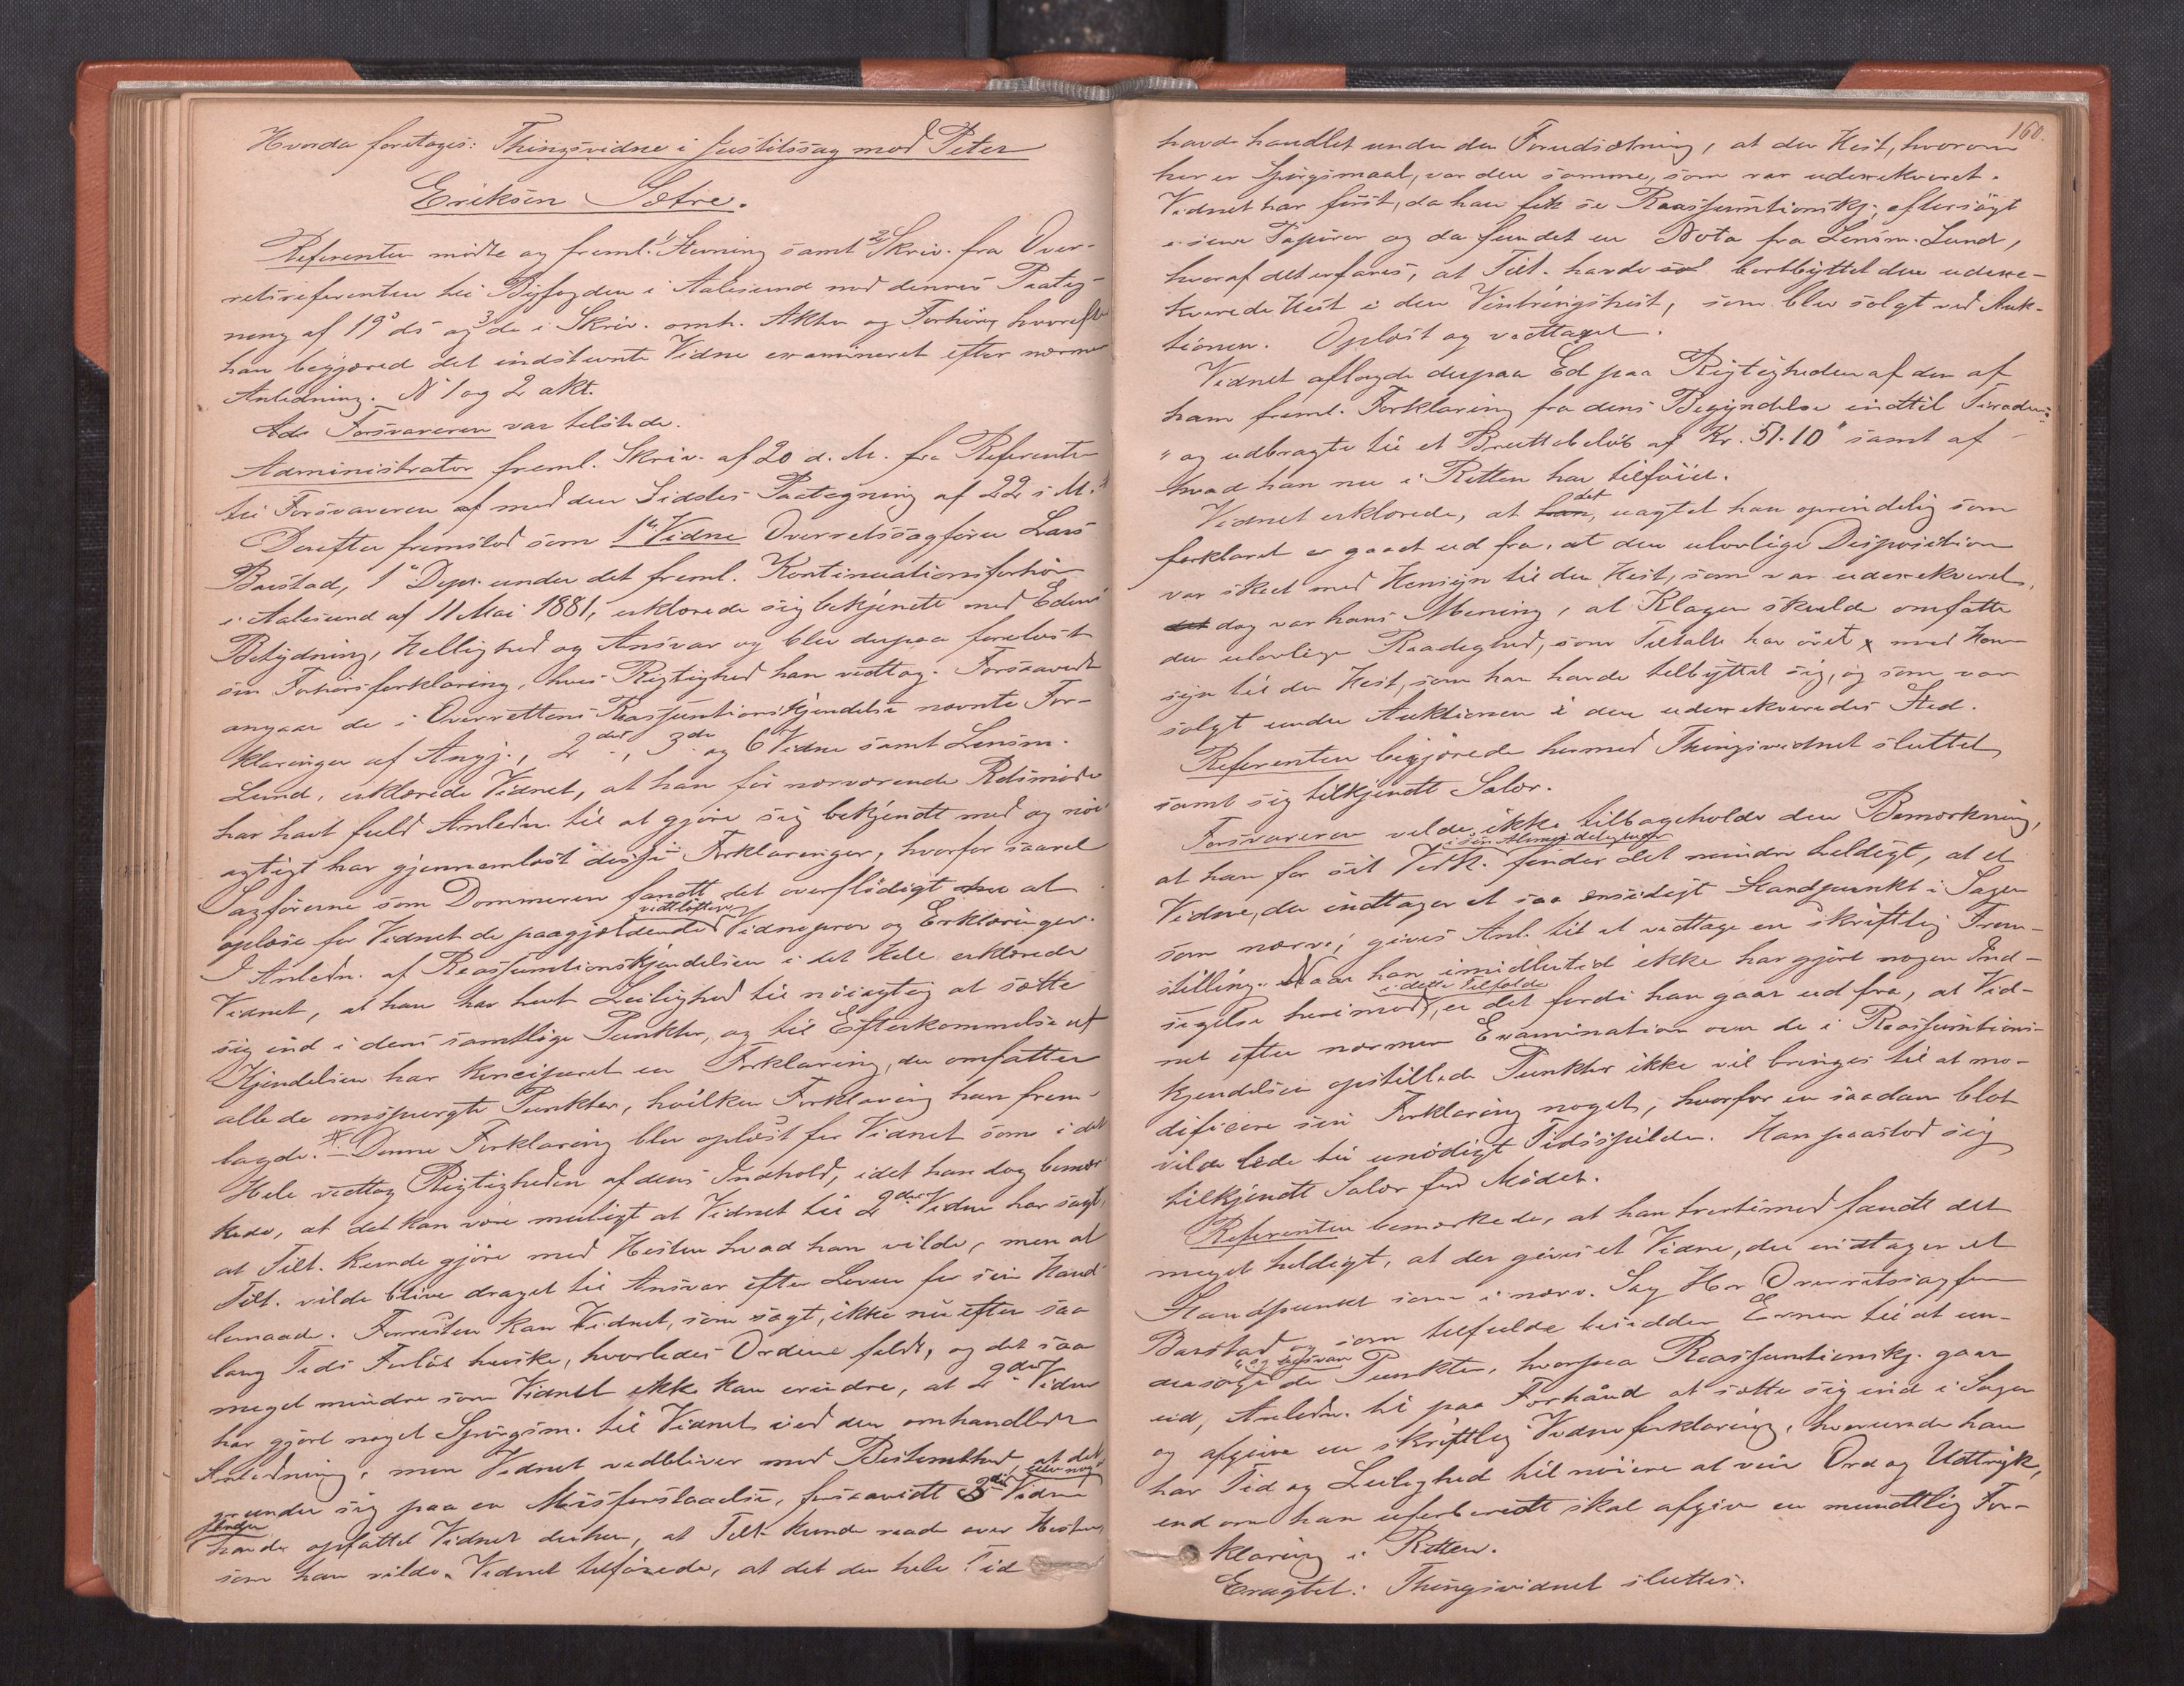 Hvorda foretoges: Thingsvidne i Justitssag mod Peter
Eriksen Sætre.
Referenten mødte og freml. 1) Stevning samt 2) Skriv. fra Over-
retsreferenten til Byfogden i Aalesund med dennes Paateg-
ning af 19de ds og 3) de i Skriv. omh. Akter og Forhør, hvorefter
han begjærede det indstevnte Vidne examineret efter nærmere
Anledning. N 1 og 2 akt.
Ads Forsvareren var tilstede.
Administrator freml. Skriv. af 20 d. M. fra Referenten
til Forsvareren af med den Sidstes Paategning af 22 s. M.
Derefter fremstod som 1ste Vidne Overretssagfører Lars
Barstad, 1ste Dep. under det freml. Kontinuationsforhør
i Aalesund af 11 Mai 1881, erklærede sig bekjendt med Edens
Betydning, Hellighed og Ansvar og blev derpaa forelæst
sin Forhørsforklaring, hvis Rigtighed han vedtog. Forsaavidt
angaar de i Overrettens Reassumtionskjendelse nævnte For-
klaringer af Angj., 2det, 3die og 6 Vidne samt Lensm.
Lund, erklærede Vidnet, at han før nærværende Retsmøde
har havt fuld Anledn. til at gjøre sig bekjendt med og nøi-
agtigt har gjennemlæst disse Forklaringer, hvorfor saavel
Sagførerne som Dommeren fandt det overflødigt at
oplæse for Vidnet de paagjældende vidtløftige Vidneprov og Erklæringer.
I Anledn. af Reassumtionskjendelsen i det Hele erklærede
Vidnet, at han har havt Leilighed til nøiagtig at sætte
sig ind i dens samtlige Punkter, og til Efterkommelse af
Kjendelsen har konciperet en Forklaring, der omfatter
alle de omspurgte Punkter, hvilken Forklaring han frem-
lagde. # Denne Forklaring blev oplæst for Vidnet som i det
Hele vedtog Rigtigheden af dens Indhold, idet han dog bemær-
kede, at det kan være muligt at Vidnet til 2det Vidne har sagt,
at Tilt. kunde gjøre med Hesten hvad han vilde, men at
Tilt. vilde blive draget til Ansvar efter Loven for sin Hand-
lemaade. Forresten kan Vidnet, som sagt, ikke nu efter saa
lang Tids Forløb huske, hvorledes Ordene faldt, og det saa
meget mindre som Vidnet ikke kan erindre, at 2det Vidne
har gjort noget Spørgsm. til Vidnet ved den omhandlede
Anledning, men Vidnet vedbliver med Bestemthed, at det
grunder sig paa en Misforstaaelse, forsaavidt 3die Vidne eller nogen
Anden
havde opfattet Vidnet derhen, at Tilt. kunde raade over Hesten,
som han vilde. Vidnet tilføiede, at det den hele Tid
160.
havde handlet under den Forudsætning, at den Hest, hvorom
her er Spørgsmaal, var den samme, som var udexekveret.
Vidnet har først, da han fik se Reassumtionskj., eftersøgt
i sine Papirer og da fundet en Nota fra Lensm. Lund,
hvoraf det erfares, at Tilt. havde bortbyttet den udexe-
kverede Hest i den Vintringshest, som blev solgt ved Auk-
tionen. Oplæst og vedtaget.
Vidnet aflagde derpaa Ed paa Rigtigheden af den af
ham freml. Forklaring fra dens Begyndelse indtil
"og udbragte til et Bruttobeløb af Kr. 51.10" samt af
hvad han nu i Retten har tilføiet.
Vidnet erklærede, at han det, uagtet han oprindelig som
forklaret er gaaet ud fra, at den ulovlige Disposition
var skeet med Hensyn til den Hest, som var udexekveret,
det dog var hans Mening, at Klagen skulde omfatte
den ulovlige Raadighed, som Tiltalte har øvet med Hen-
syn til den Hest, som han havde tilbyttet sig, og som var
solgt under Auktionen i den udexekveredes Sted.
Referenten begjærede hermed Thingsvidnet sluttet
samt sig tilkjendt Salær.
Forsvareren vilde ikke tilbageholde den Bemærkning,
at han for sit Vedk. i sin Almindelighed finder det mindre heldigt, at et
Vidne, der indtager et saa ensidigt Standpunkt i Sagen
som nærv., gives Anl. til at vedtage en skriftlig Frem-
stilling. Naar han imidlertid ikke har gjort nogen Ind-
sigelse herimod i dette Tilfælde, er det fordi han gaar ud fra, at Vid-
net efter nærmere Examination over de i Reassumtions-
kjendelsen opstillede Punkter ikke vil bringes til at mo-
dificere sin Forklaring noget, hvorfor en saadan blot
vilde lede til unødigt Tidsspilde. Han paastod sig
tilkjendt Salær for Mødet.
Referenten bemærkede, at han tvertimod fandt det
meget heldigt, at der gives et Vidne, der indtager et
Standpunkt som i nærv. Sag Hr. Overretssagfører
Barstad og som tilfulde besidder Evnen til at un-
dersøge og besvare de Punkter, hvorpaa Reassumtionskj. gaar
ud, Anledn. til paa Forhånd at sætte sig ind i Sagen
og afgive en skriftlig Vidneforklaring, hvorunder han
har Tid og Leilighed til nøiere at veie Ord og Udtryk,
end om han uforberedt skal afgive en mundtlig For-
klaring i Retten.
Eragtet: Thingsvidnet sluttes.